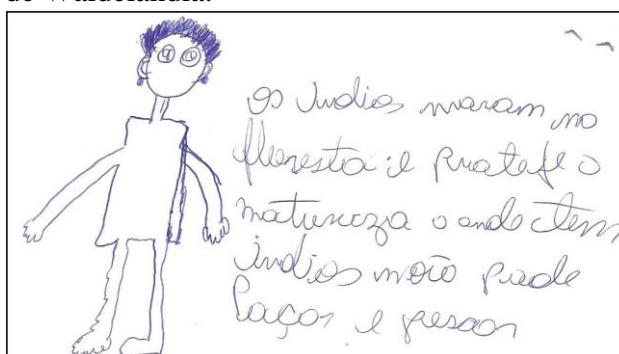 de Waldelândia.
os Indios moram no
floresta e protefe o
natureza o onde tem
indios não pode
caçar e pescar